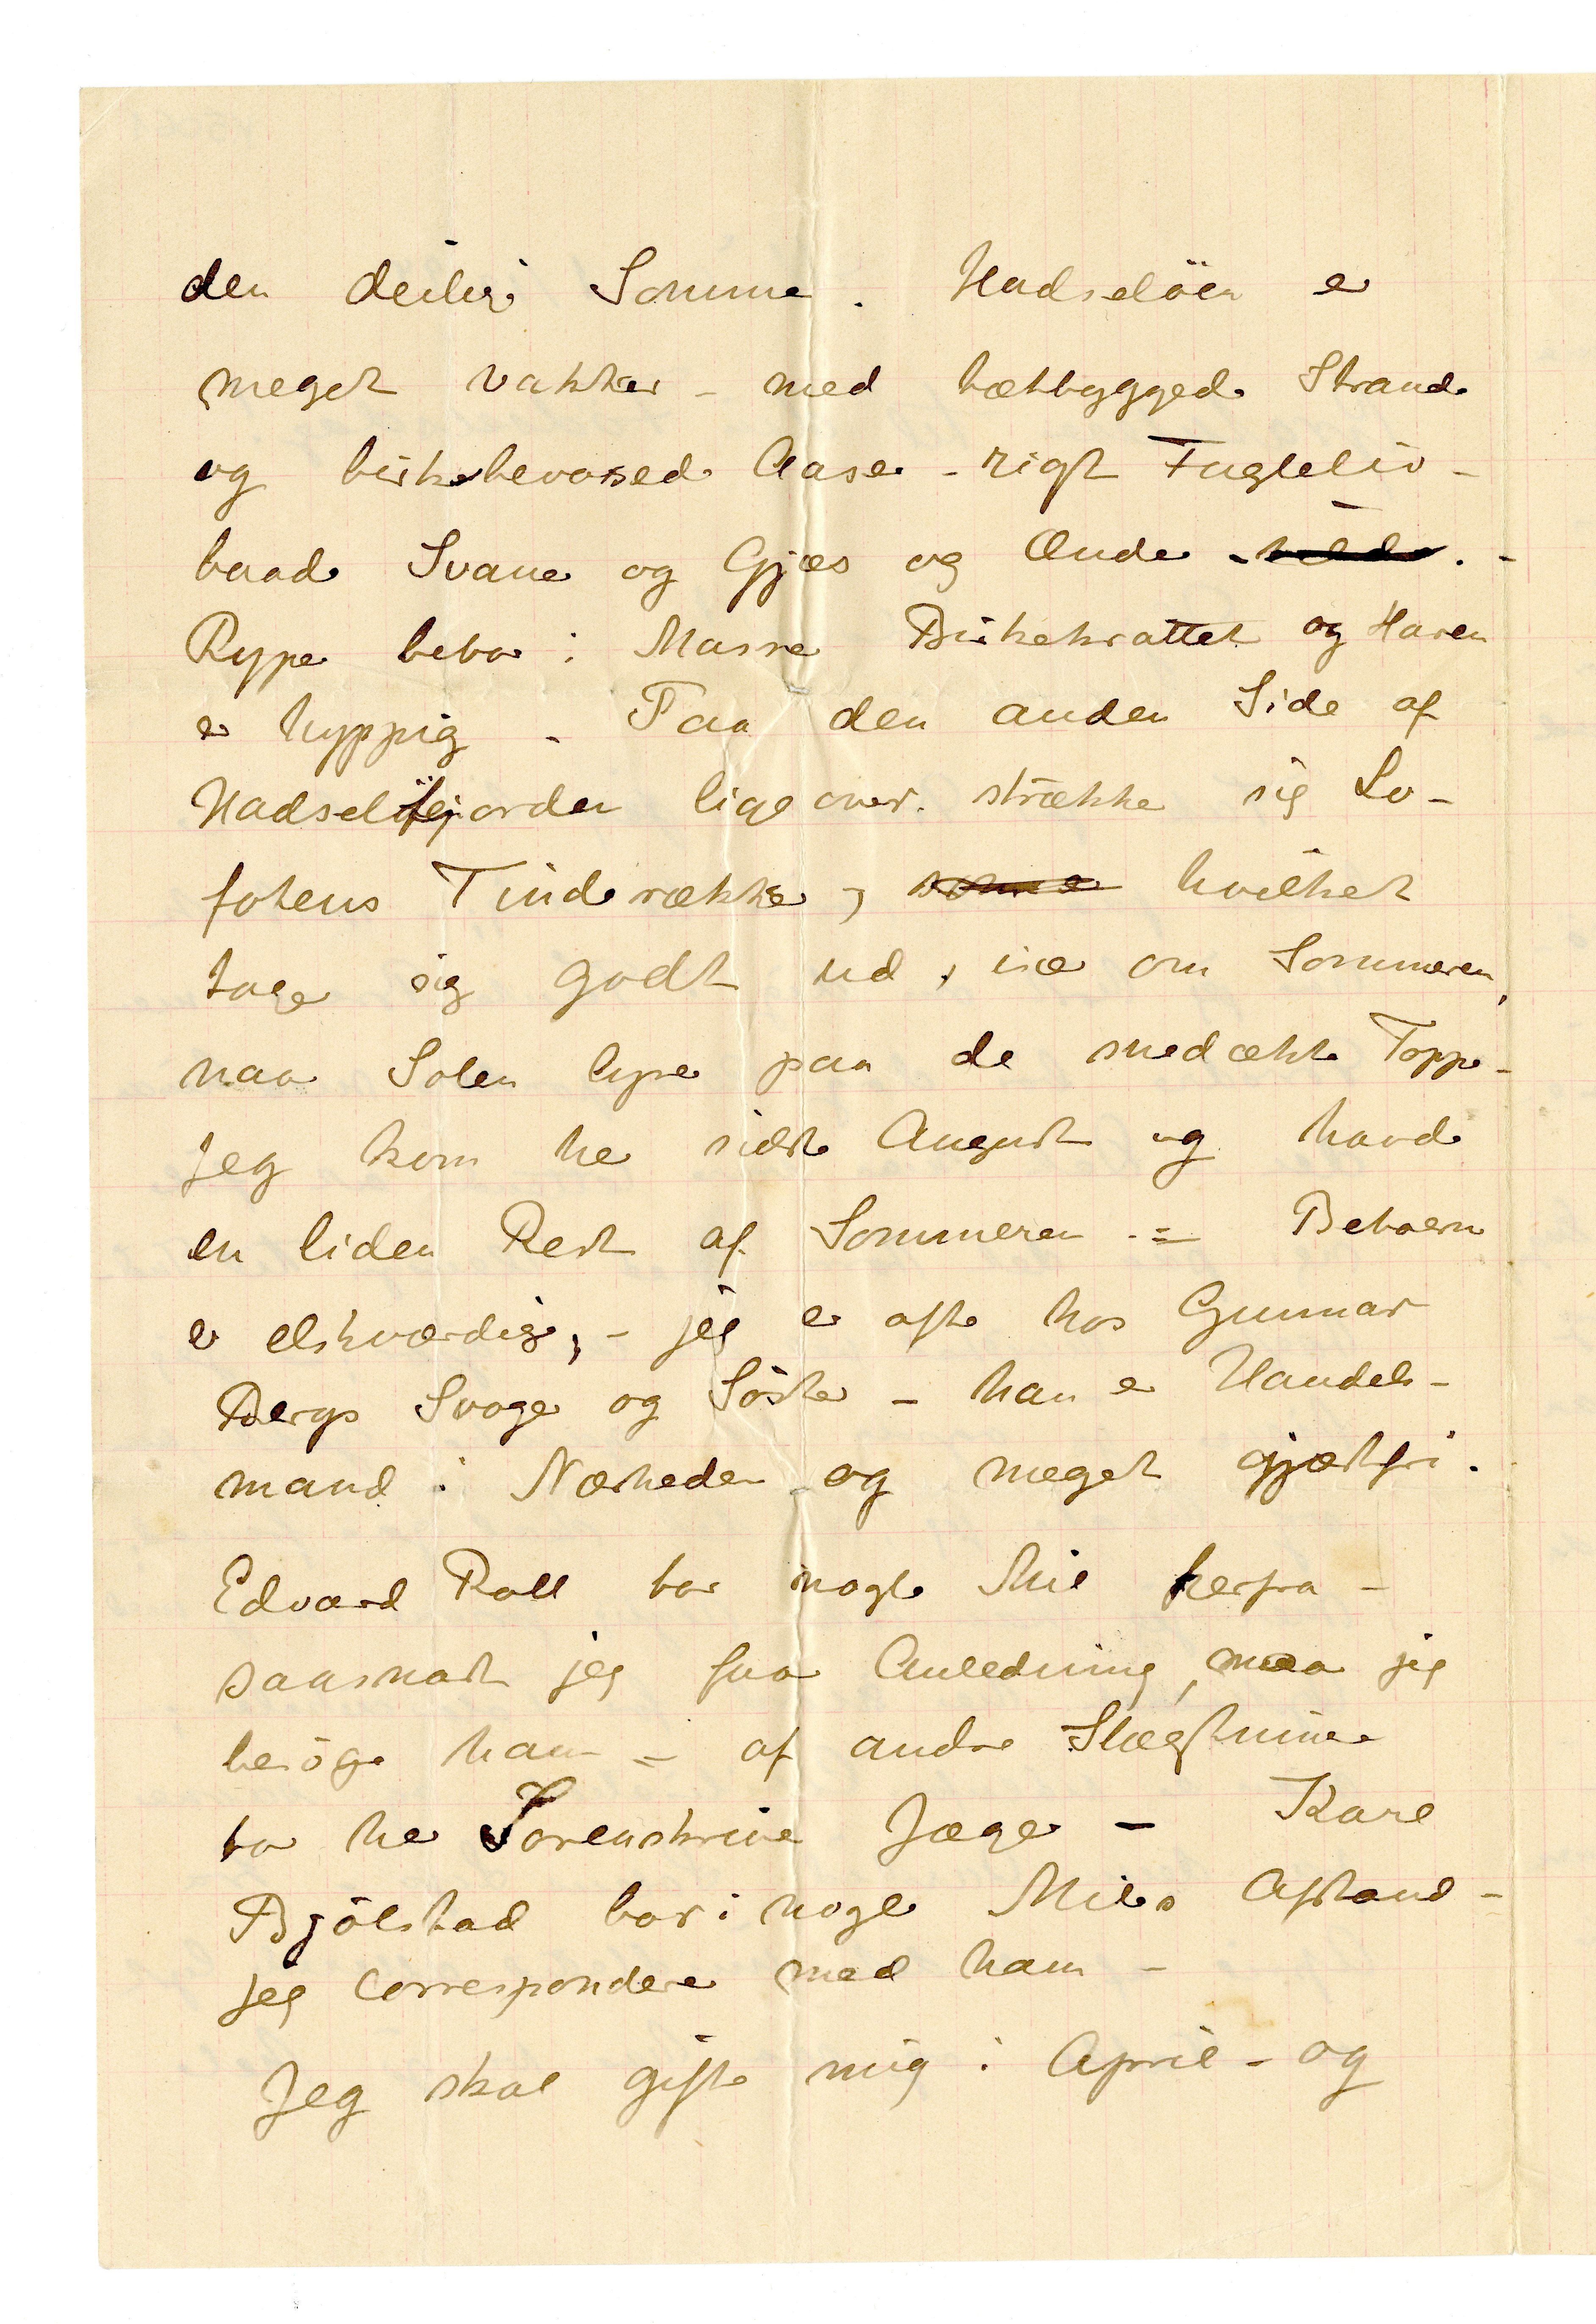 den deilige Sommer. Hadselöen er
meget vakker – med tætbyggede Strande
og birkebevoxede Aaser – rigt Fugleliv –
baade Svaner og Gjæs og Ænder . –
Ryper bebor i Masse Birkekrattet og Haren
er hyppig – Paa den anden Side af
Hadselfjorden ligeover strækker sig Lo-
fotens Tinderække, hvilket
tager sig godt ud, især om Sommeren,
naar Solen lyser paa de snedækte Toppe –
Jeg kom her sidst August og havde
en liden Rest af Sommeren – Beboerne
er elskværdige, – jeg er ofte hos Gunnar
Bergs Svoger og Söster – han er Handels-
mand i Nærheden og meget gjæstfri.
Edvard Roll bor nogle Mil herfra –
saasnart jeg faar Anledning, maa jeg
besöge ham – af andre Slægtninge
bor her Sorenskriver Jæger – Karl
Bjölstad bor i nogle Miles Afstand –
jeg corresponderer med ham –
Jeg skal gifte mig i April – og